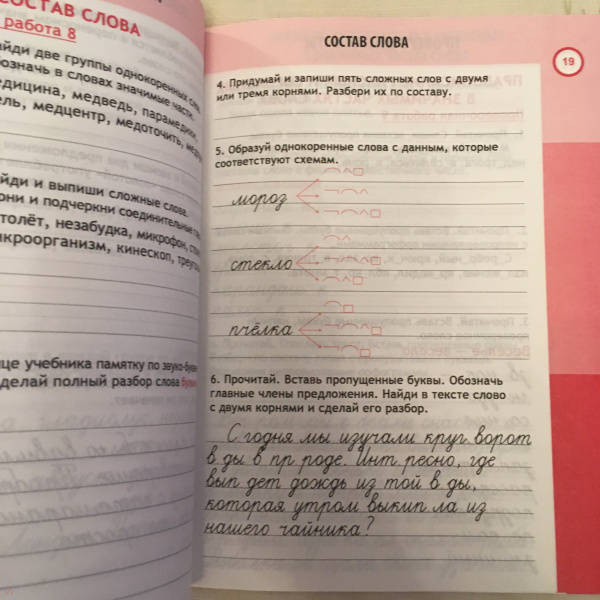 СОСТАВ СЛОВА
работа 8
две группы однокоренных
в словах значимые части.
медведь,
медцентр, медоточить,
и выпиши сложные слова.
и подчеркни соединительные
незабудка, микрофон,
кинескоп,
учебника памятку по звуко-бук
полный разбор слова
СОСТАВ СЛОВА
19
4. Придумай и запиши пять сложных слов с двумя
или тремя корнями. Разбери их по составу.
5. Образуй однокоренные слова с данным, которые
соответствуют схемам.
мороз
стекло
пчёлка
6. Прочитай. Вставь пропущенные буквы. Обозначь
главные члены предложения. Найди в тексте слово
с двумя корнями и сделай его разбор.
С годня мы изучали круг ворот
в ды в пр роде. Инт ресно, где
вып дет дождь из той в ды,
которая утром выкип ла из
нашего чайника?